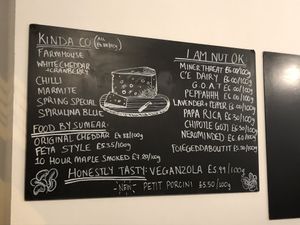 KINDA CO (ALL
FARMHOUSE
WHITE CHEDDAR
+CRANBERRY
CHILLI
MARMITE
SPRING SPECIAL
SPIRULINA BLUE
FOOD BY SUMEAR
ORIGINAL CHEDDAR /100g
FETA STYLE £5.75/100g
10 HOUR MAPLE SMOKED £7.20/100g
I AM NUT OK
MINER THREAT £6.00/100g
C'E DAIRY £6.00/100g
G.O.A.T £6.00/100g
PEPPAHHH £6.00/100g
LAVENDER + PEPPER £6.00/100g
PAPA RICA £6.30/100g
CHIPOTLE GOTI £6.30/100g
NEROMINDED £6.60/100g
FOIEGEDDABOUTIT
HONESTLY TASTY: VEGANZOLA £5.99/100g
-NEW- PETIT PORCINI £5.50/100g